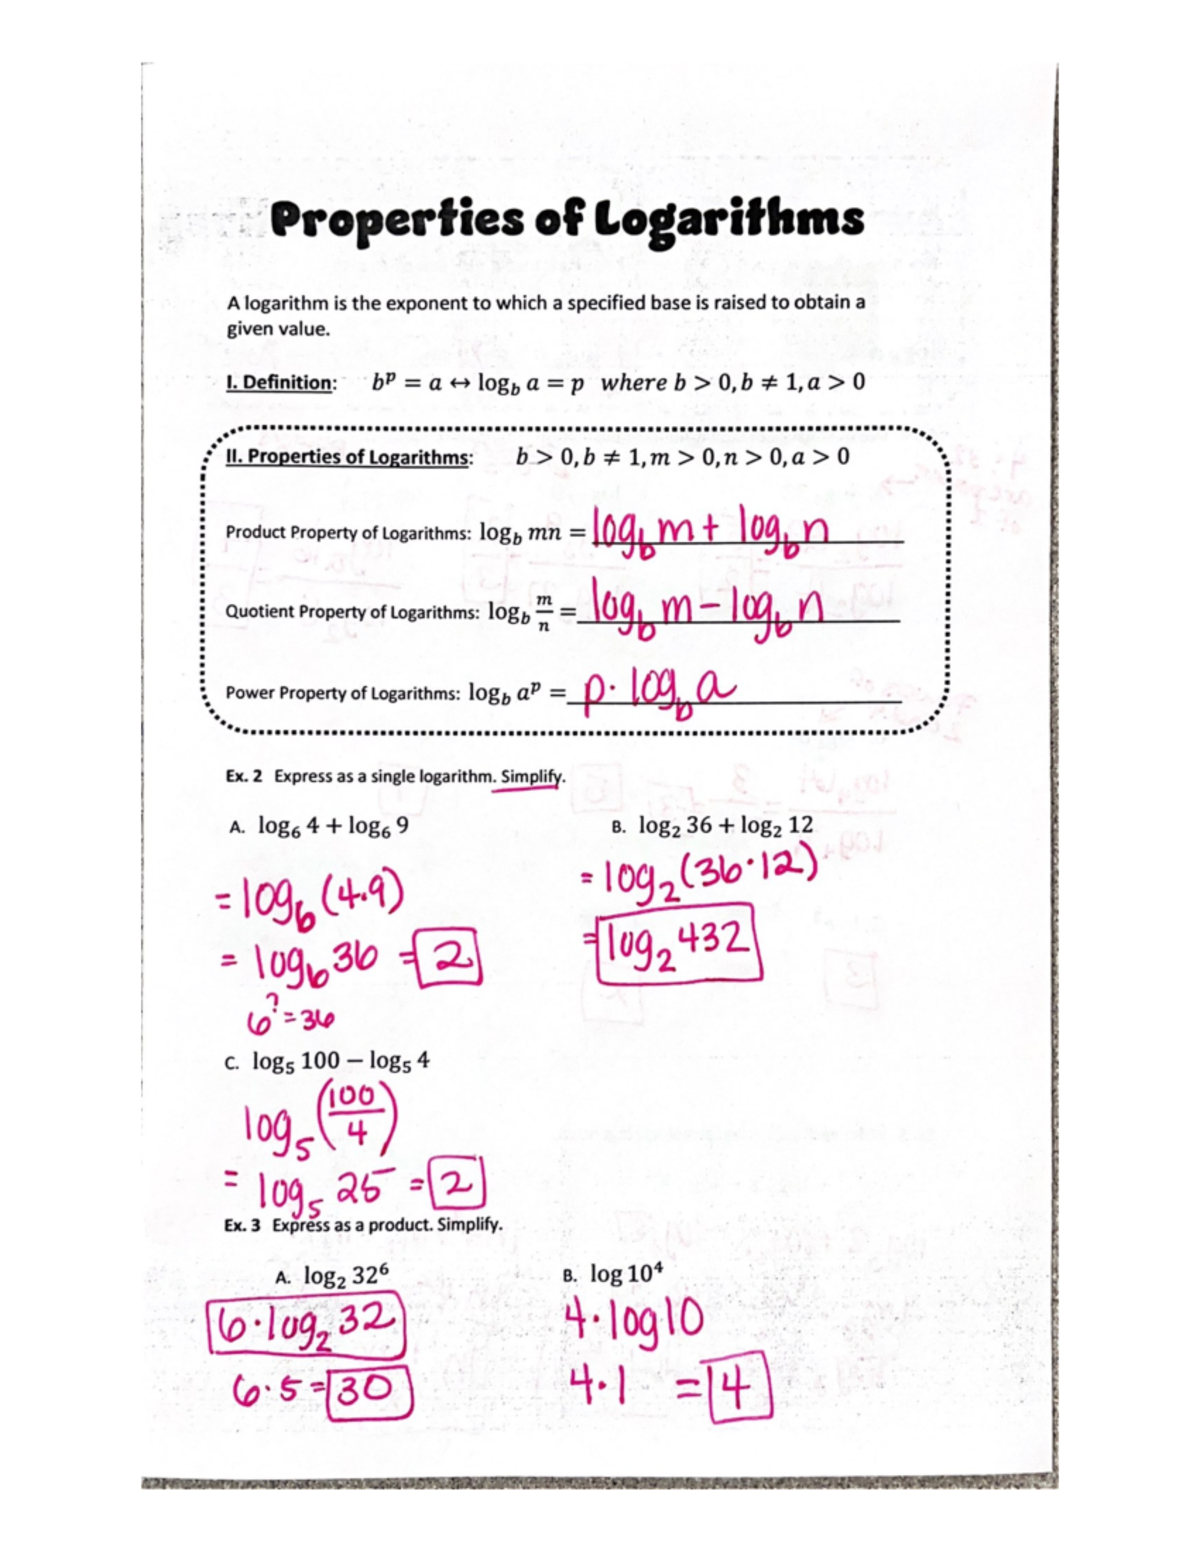 Properties of Logarithms
A logarithm is the exponent to which a specified base is raised to obtain a
given value.
I. Definition: bᵖ = a ↔ log_b a = p where b > 0, b ≠ 1, a > 0
II. Properties of Logarithms: b > 0, b ≠ 1, m > 0, n > 0, a > 0
Product Property of Logarithms: log_b mn = log_b m + log_b n
Quotient Property of Logarithms: log_b m/n = log_b m - log_b n
Power Property of Logarithms: log_b aᵖ = p · log_b a
Ex. 2 Express as a single logarithm. Simplify.
A. log₆ 4 + log₆ 9
B. log₂ 36 + log₂ 12
= log₆ (4·9)
= log₂ (36·12)
= log₆ 36 = 2
= log₂ 432
6^? = 36
C. log₅ 100 − log₅ 4
log₅ (100/4)
= log₅ 25 = 2
Ex. 3 Express as a product. Simplify.
A. log₂ 32⁶
B. log 10⁴
6·log₂ 32
4·log10
6·5 = 30
4·1 = 4